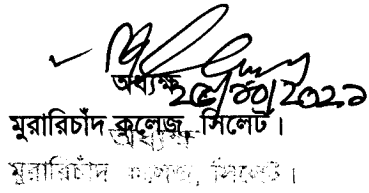 অধ্যক্ষ
২৫/১০/২০২১
মুরারিচাঁদ কলেজ, সিলেট।
অধ্যক্ষ
মুরারিচাঁদ কলেজ, সিলেট।